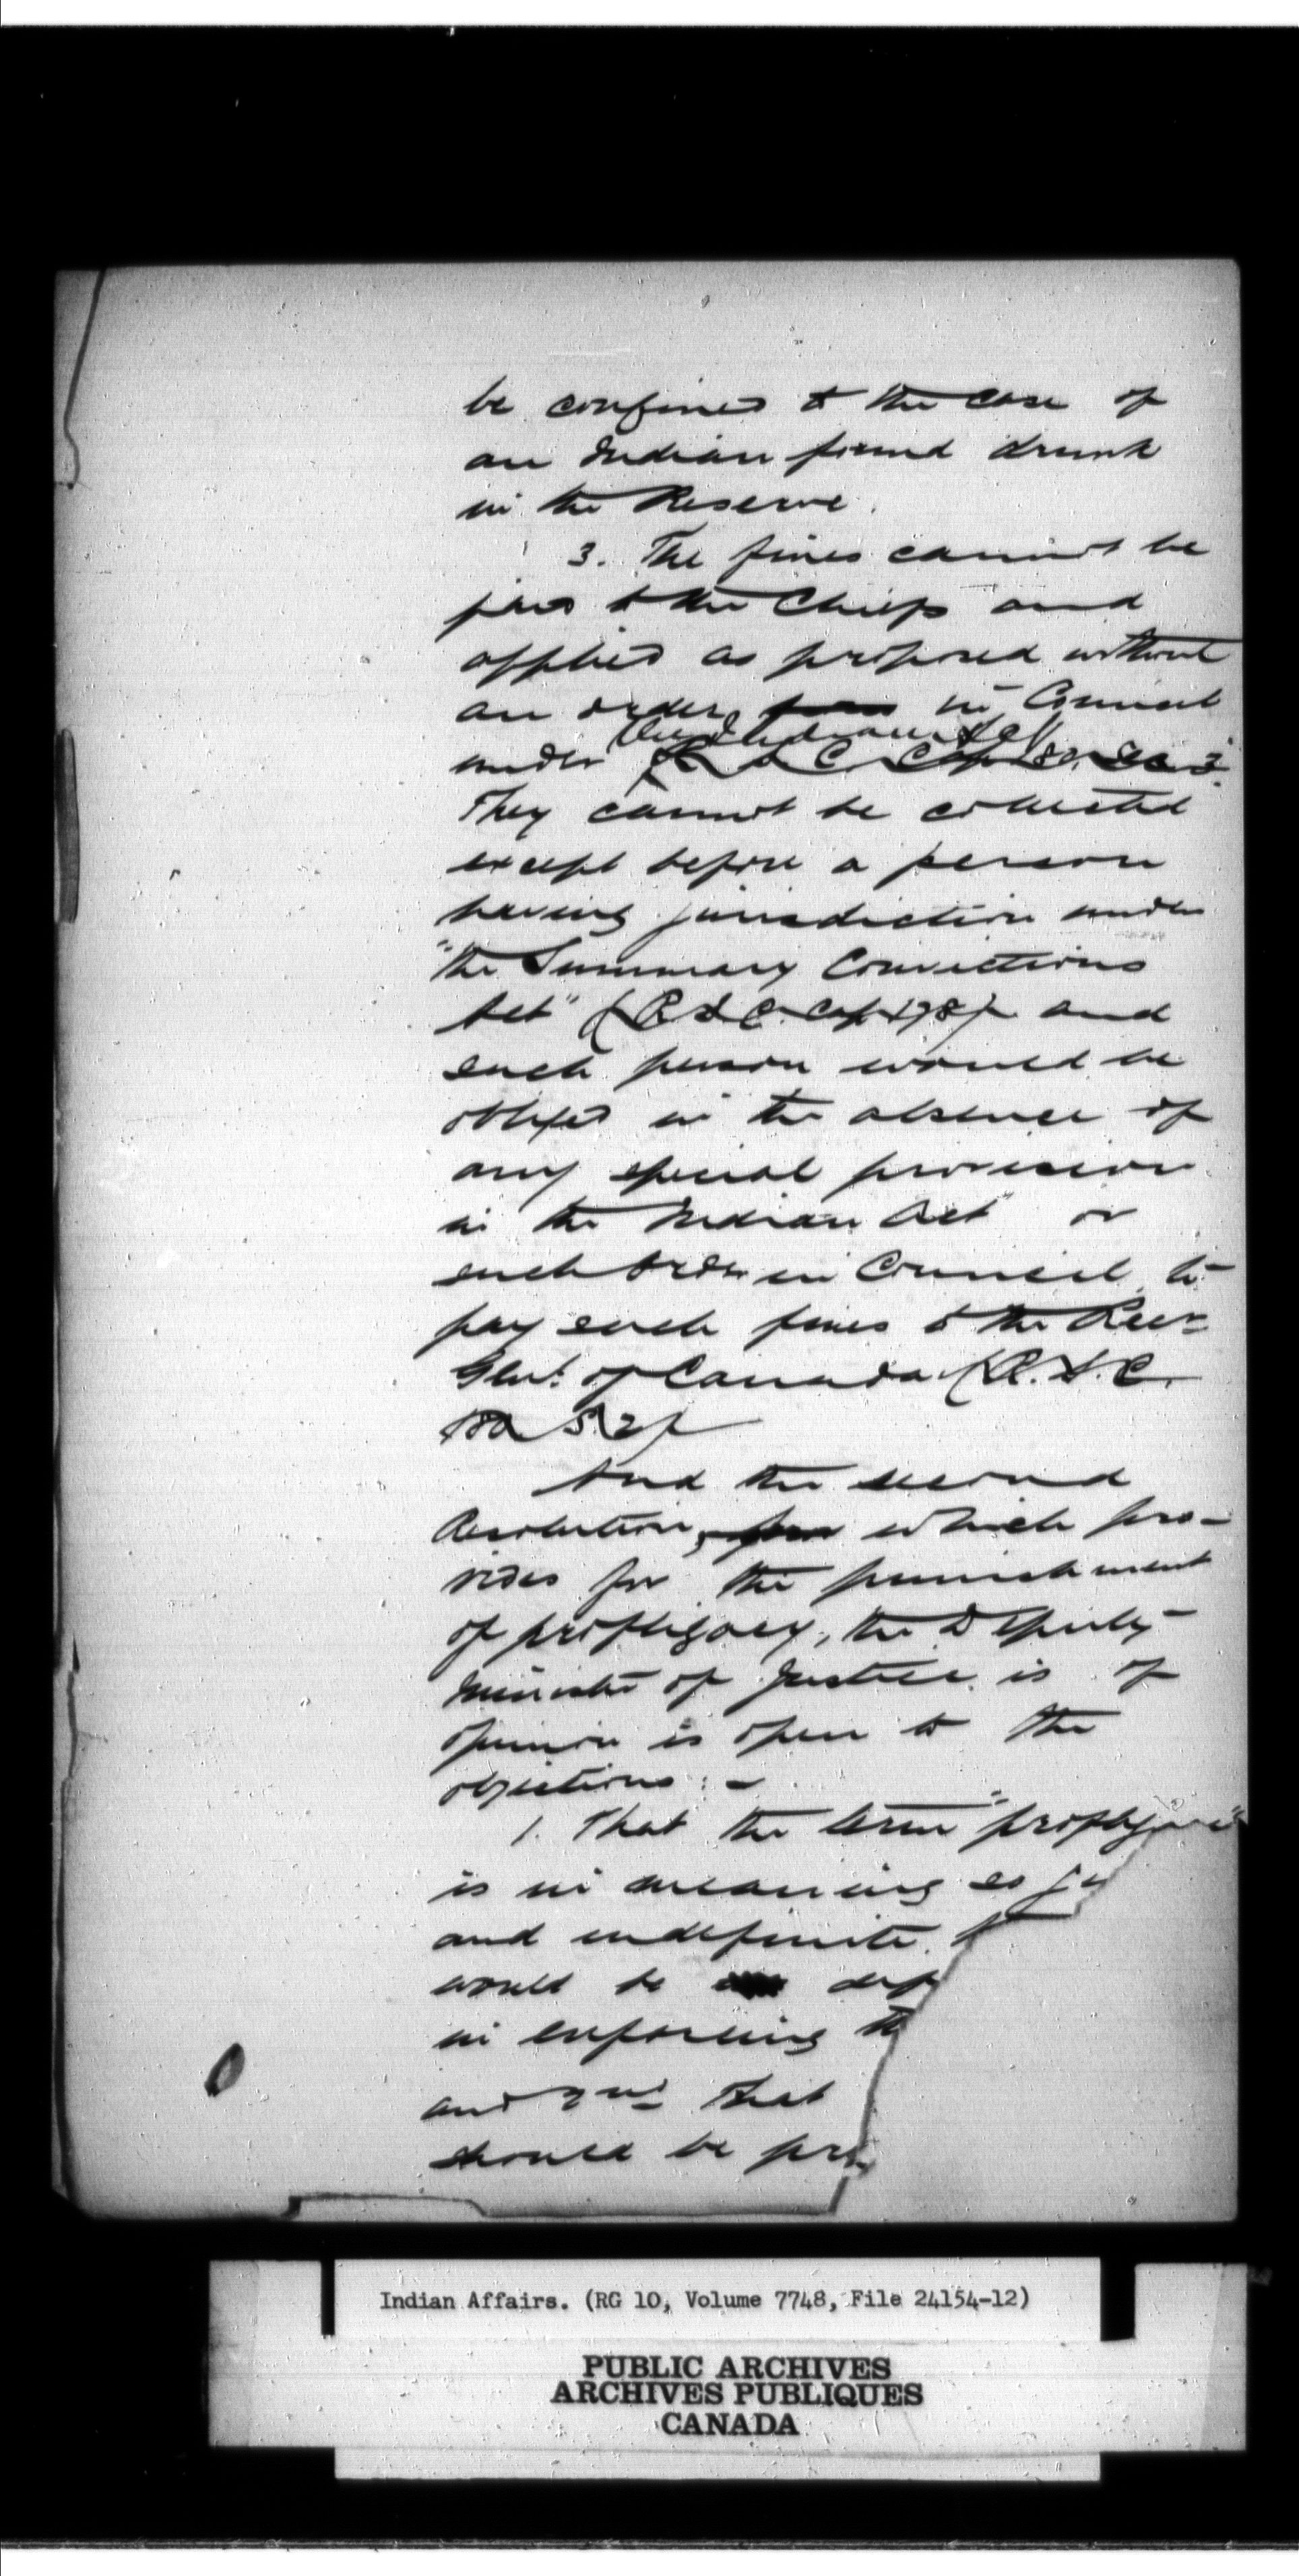 be confined to the case of
an Indian found drunk
in the Reserve.
3. The fines cannot be
paid to the Chiefs and
applied as proposed without
an order in Council
the Indian Act
under R S C Cap
They cannot be collected
except before a person
having jurisdiction under
"the Summary Convictions
Act" (R S C Cap 178) and
such person would be
obliged in the absence of
any special provision
in the Indian Act or
such order in Council to
pay such fines to the Recr
Genl. of Canada (R. S. C.
180 S. 2)
And the second
Resolution, which pro-
vides for the punishment
of profligacy, the Deputy
Minister of Justice is of
opinion is open to the
objections: -
1. That the term "profligacy"
is in meaning so
and indefinite
would be
in enforcing th
and 2nd that
should be pr
Indian Affairs. (RG 10, Volume 7748, File 24154-12)
PUBLIC ARCHIVES
ARCHIVES PUBLIQUES
CANADA